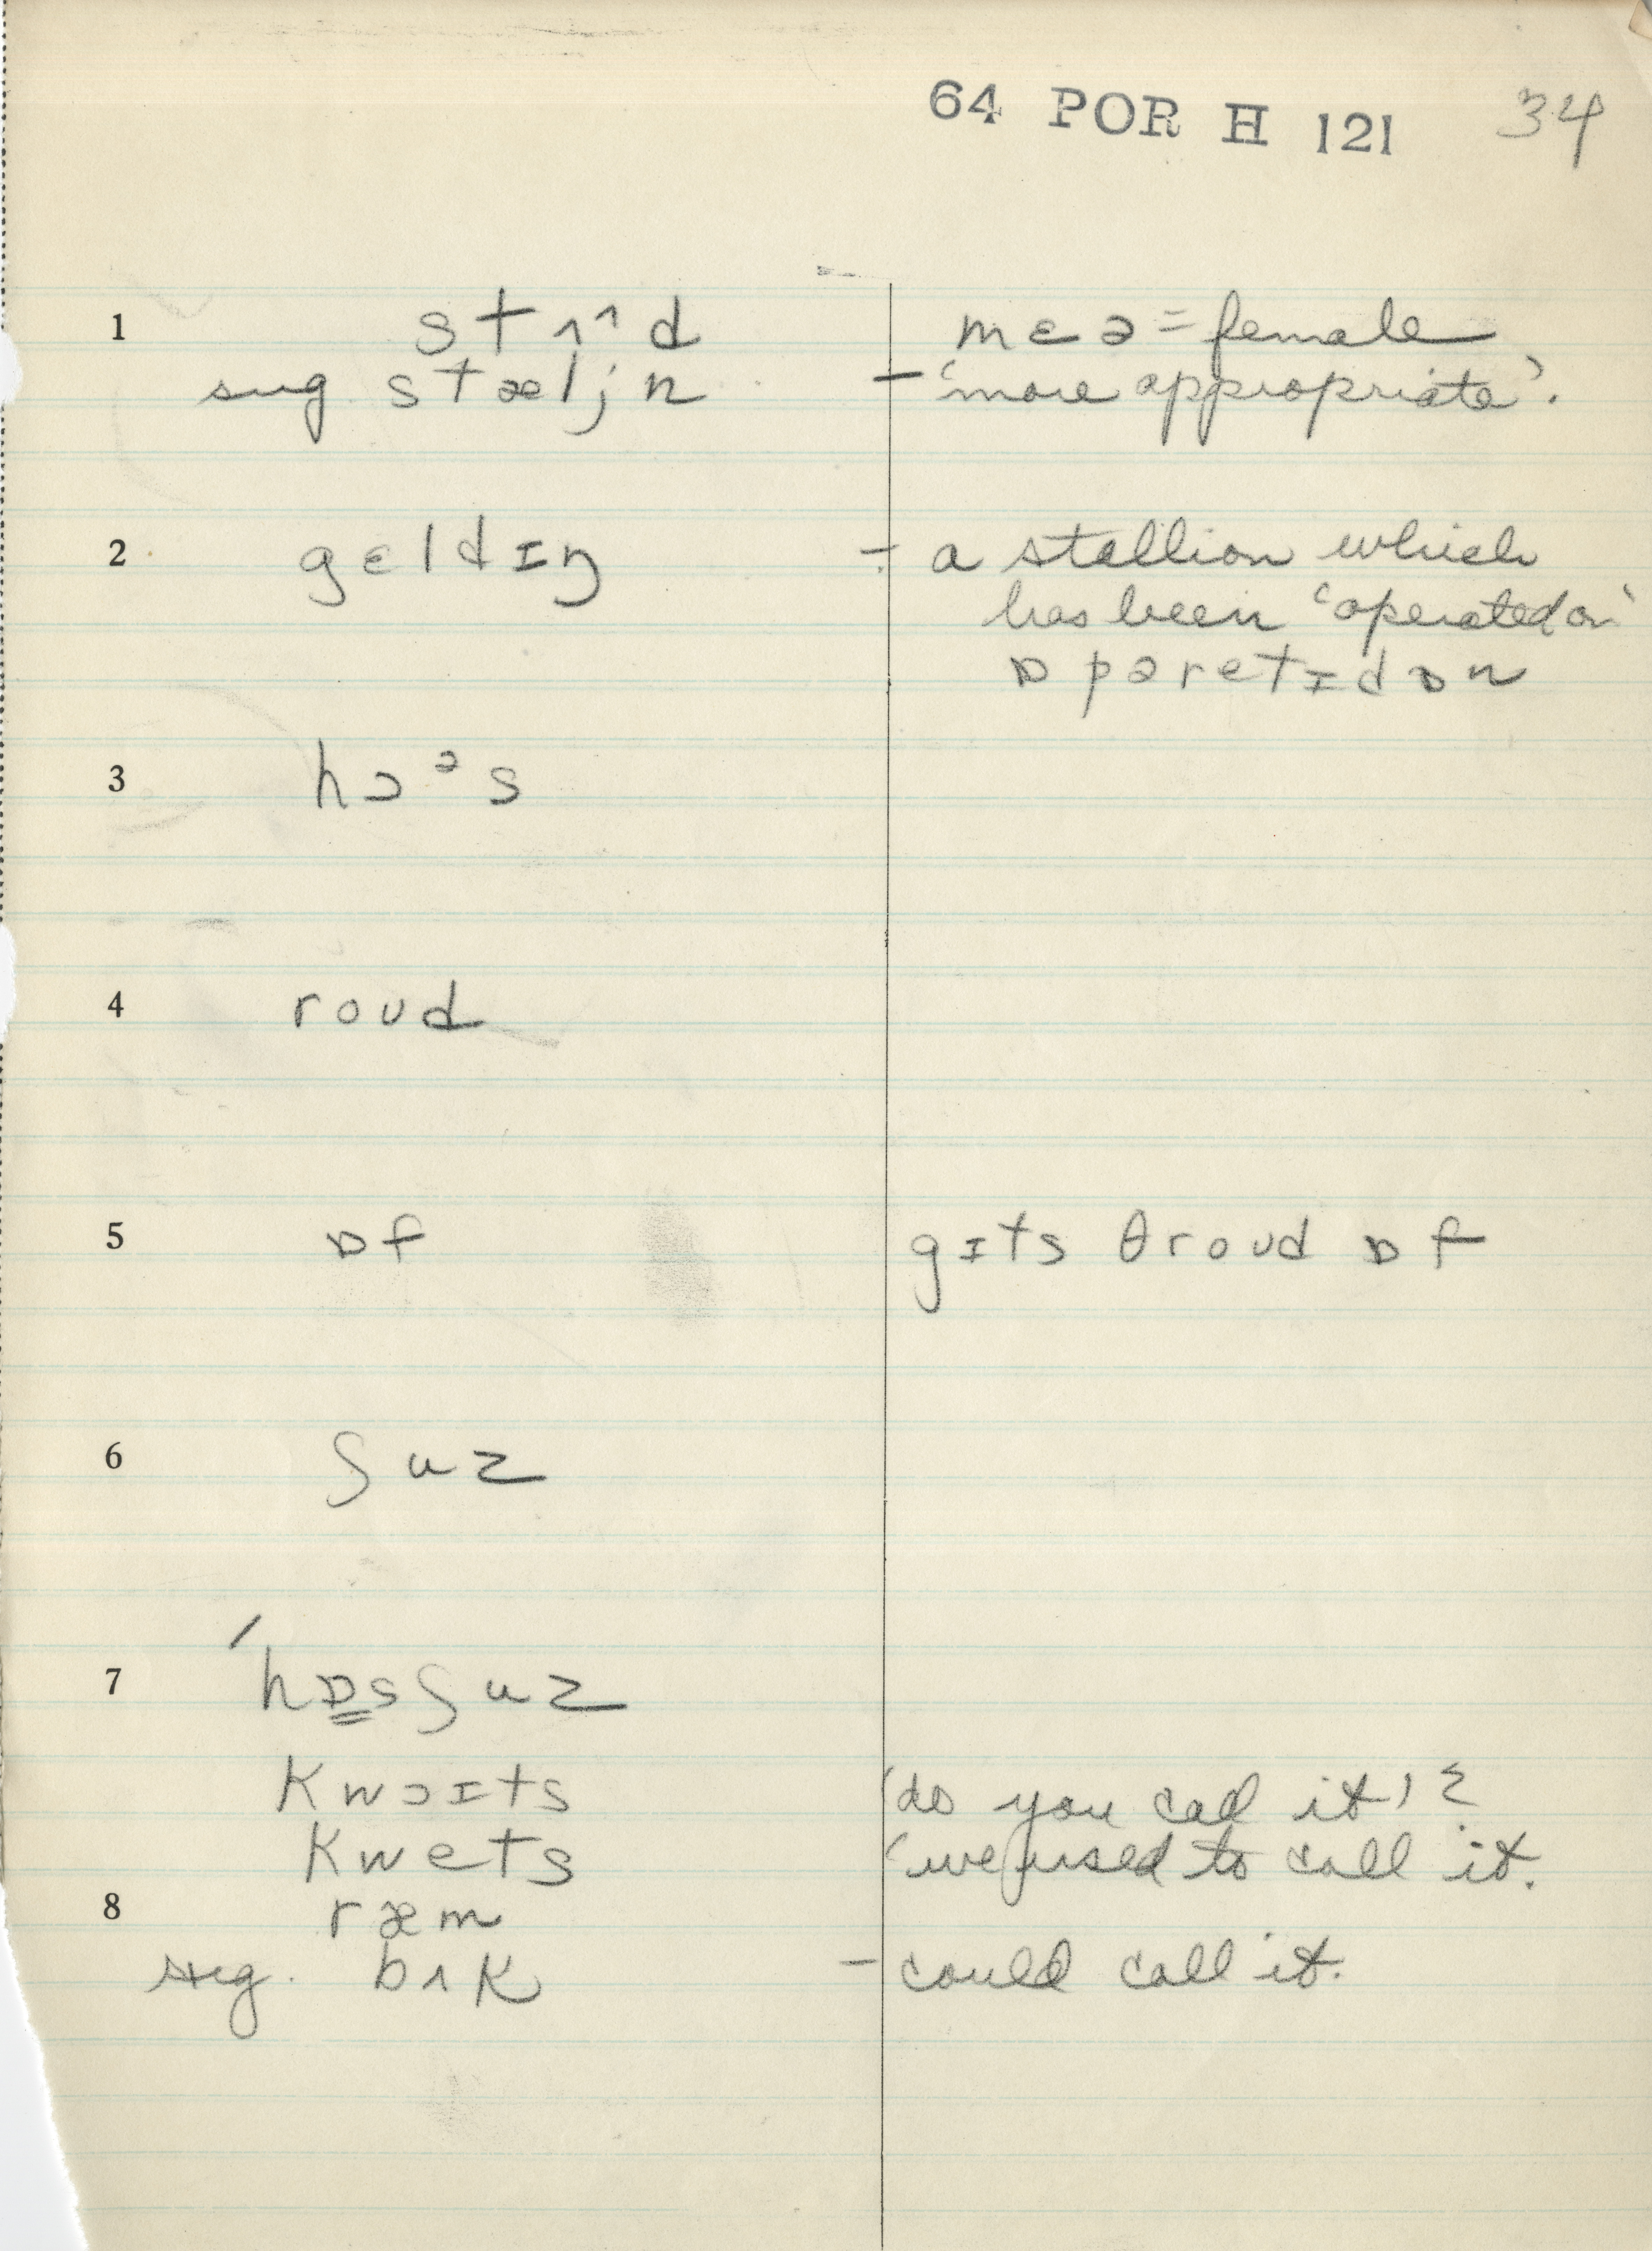 64 POR H 121 34
1 stʌ^ʌd mɛə = female
sug. stæljn – 'more appropriate'.
2 gɛldɪŋ – a stallion which
has been 'operated on'
ɒpəretɪdɒn
3 hɔᵊs
4 roud
5 ɒf gɪts θroud ɒf
6 ʃuz
7 'hɒsʃuz
kwɔɪts 'do you call it'?
kwets 'we used to call it.
8 ræm
sug. bʌk – could call it.